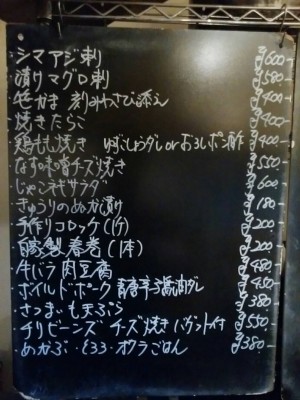 ・シマアジ刺 ¥600
・漬けマグロ刺 ¥580
・笹かま 刻みわさび添え ¥400
・焼きたらこ ¥400
・鶏もも焼き ゆずこしょうダレorおろしポン酢
・なす味噌チーズ焼き ¥550
・じゃこネギサラダ ¥600
・きゅうりのぬか漬け ¥180
・手作りコロッケ(1ケ) ¥200
・自家製春巻(1本) ¥200
・牛バラ肉豆腐 ¥480
・ボイルドポーク 青唐辛子醤油ダレ ¥450
・さつまいも天ぷら ¥380
・チリビーンズ チーズ焼き バゲット付 ¥550
・めかぶ・とろろ・オクラごはん ¥380